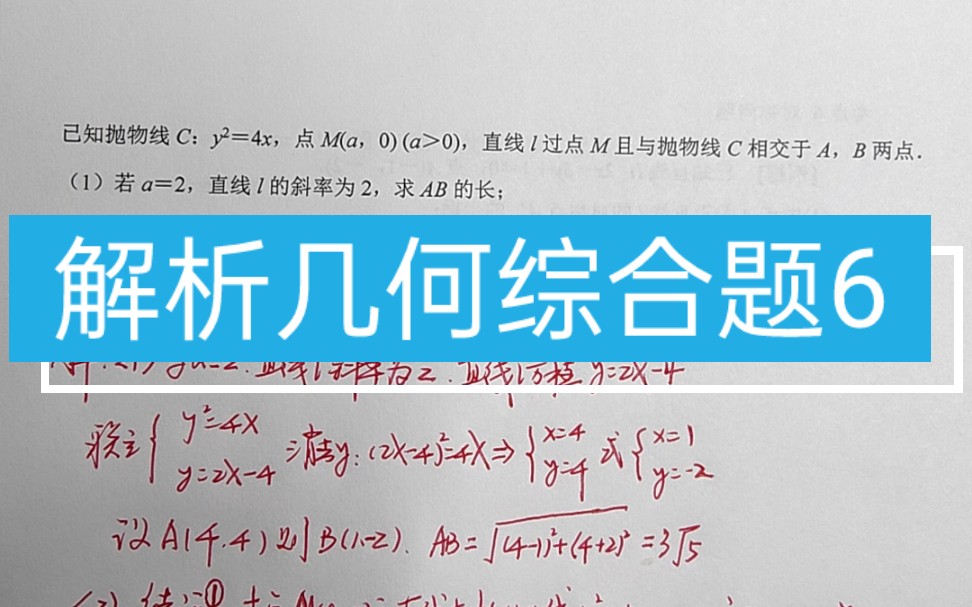 已知抛物线 C：y²＝4x，点 M(a，0)(a＞0)，直线 l 过点 M 且与抛物线 C 相交于 A，B 两点．
（1）若 a＝2，直线 l 的斜率为 2，求 AB 的长；
解析几何综合题6
直线l斜率为2．直线l方程 y=2x-4
联立{ y²=4x y=2x-4 消去y：(2x-4)²=4x⇒{ x=4 y=4 或{ x=1 y=-2
设A(4,4) 则B(1,-2)． AB=√((4-1)²+(4+2)²) =3√5